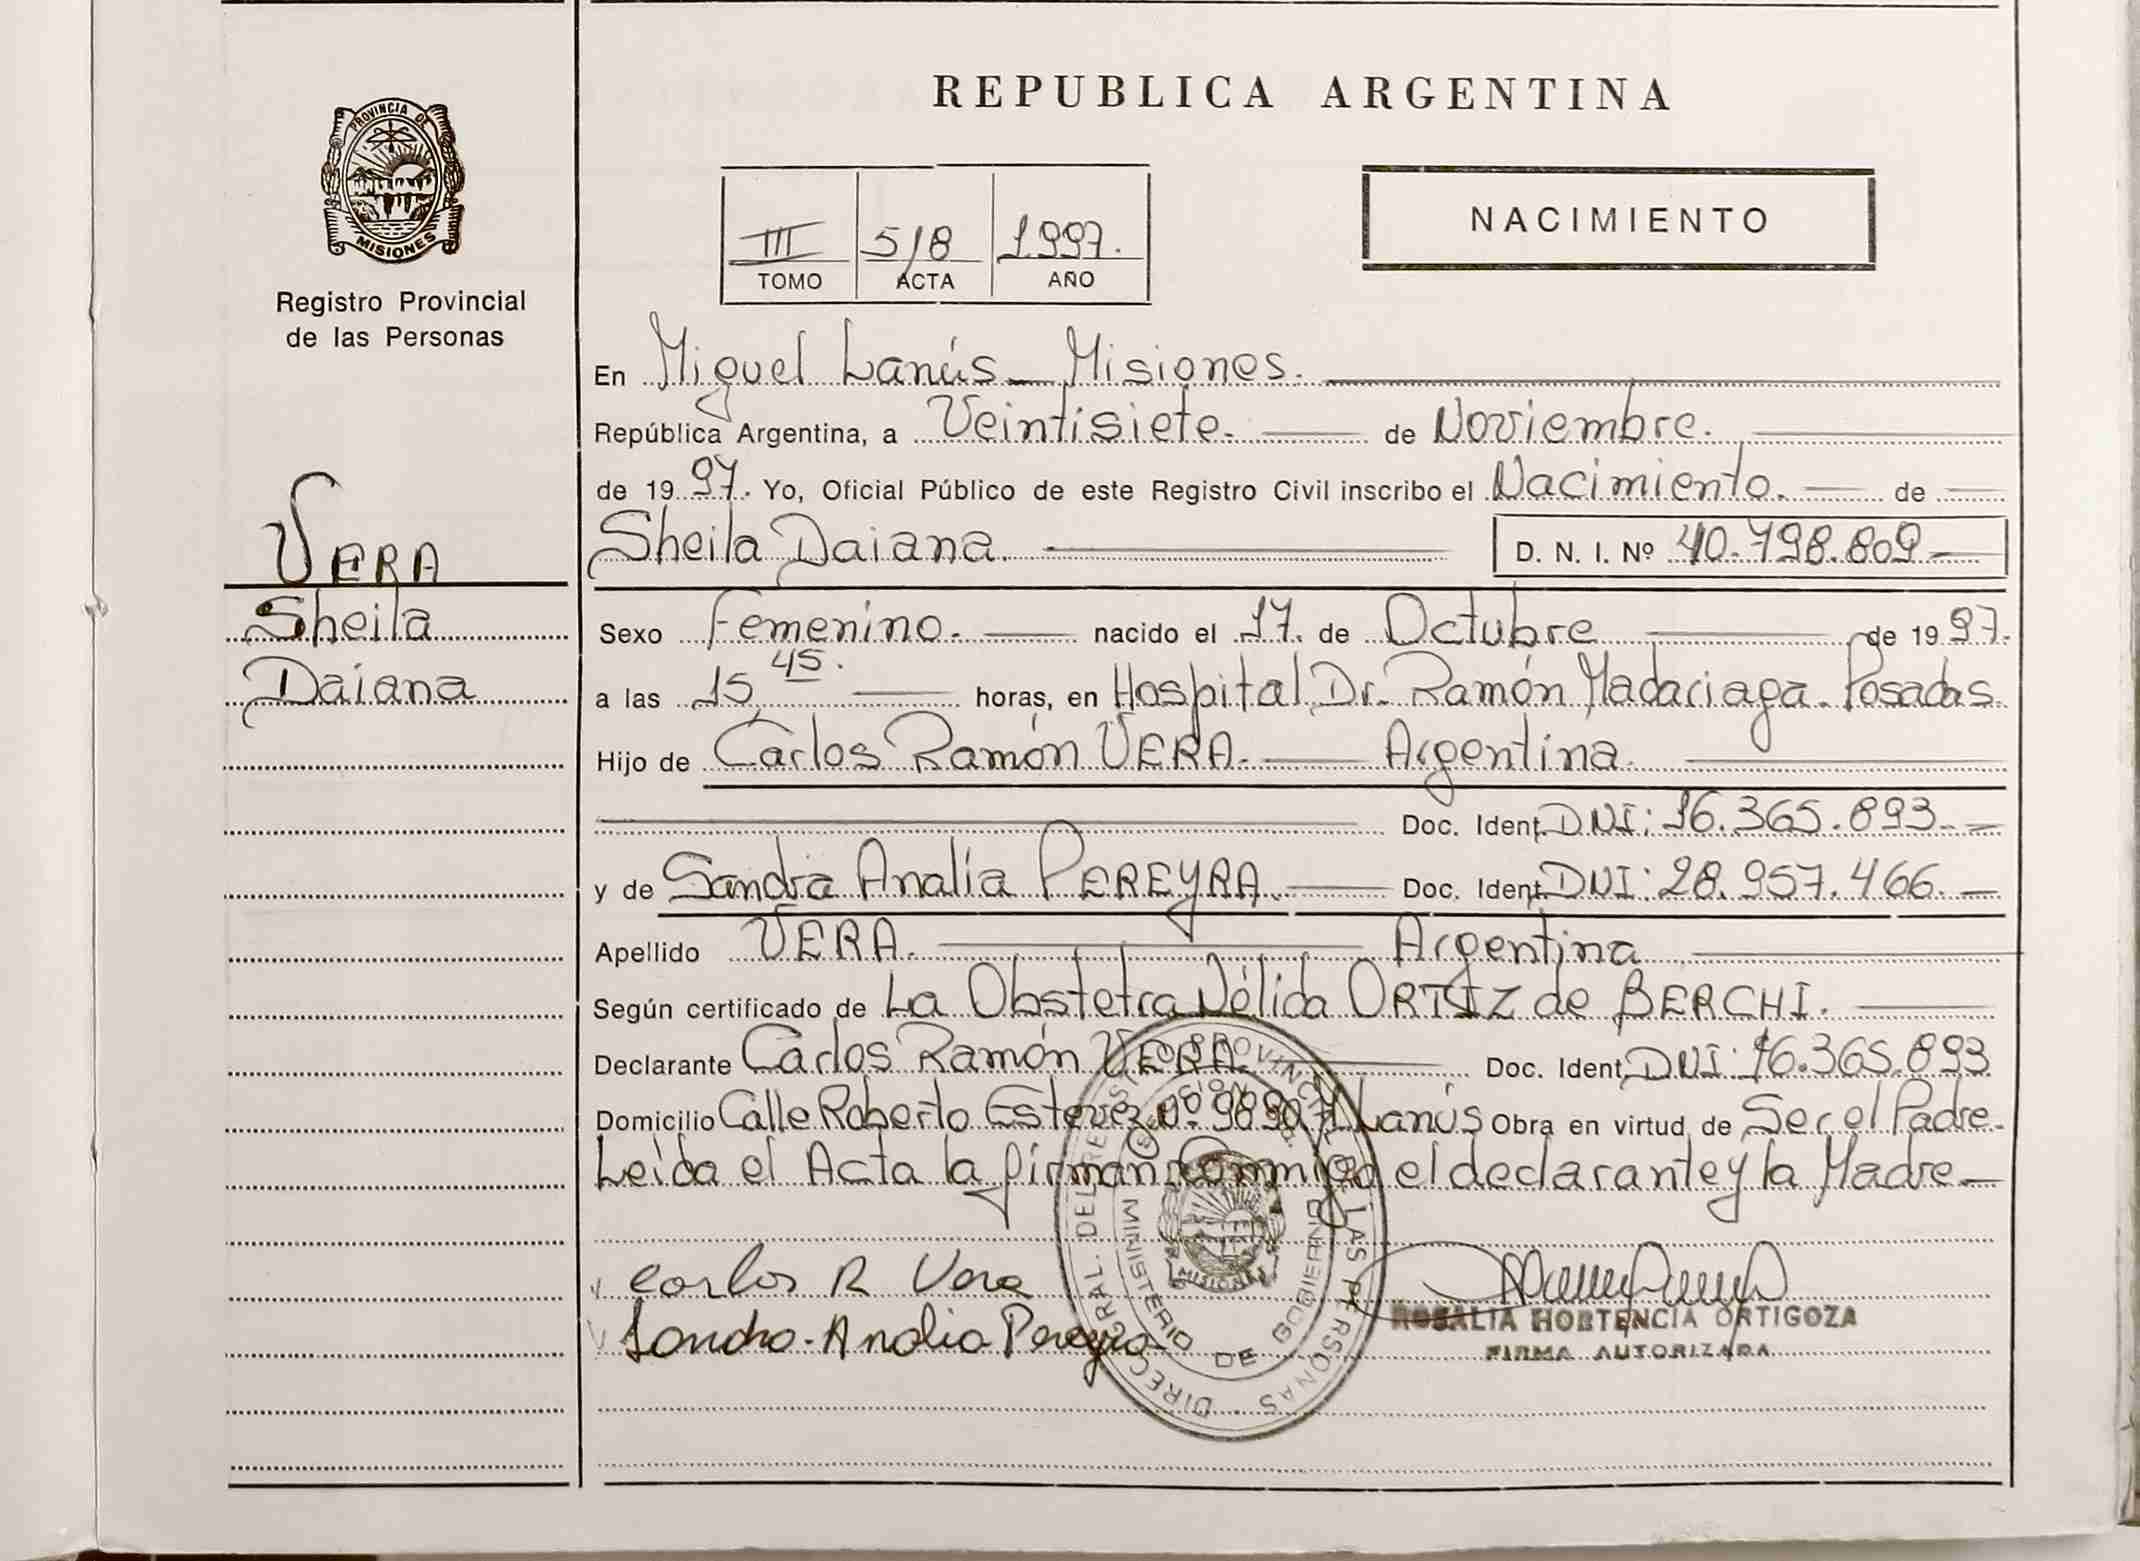 REPUBLICA ARGENTINA
PROVINCIA DE
MISIONES
Registro Provincial
de las Personas
NACIMIENTO
III 518 1.997.
TOMO ACTA AÑO
En Miguel Lanús - Misiones.
República Argentina, a Veintisiete. de Noviembre.
de 1997. Yo, Oficial Público de este Registro Civil inscribo el Nacimiento. de
VERA
Sheila
Daiana
Sheila Daiana. D. N. I. Nº 40.798.809
Sexo Femenino. nacido el 17. de Octubre de 1997.
a las 15,45. horas, en Hospital Dr. Ramón Madariaga. Posadas.
Hijo de Carlos Ramón VERA. Argentina.
Doc. Ident. DNI: 16.365.893.
y de Sandra Analía PEREYRA. Doc. Ident. DNI: 28.957.466.
Apellido VERA. Argentina
Según certificado de La Obstetra Nélida ORTIZ de BERCHI.
Declarante Carlos Ramón VERA. Doc. Ident. DNI: 16.365.893
Domicilio Calle Roberto Estevez Nº Lanús Obra en virtud de Ser el Padre.
Leída el Acta la firman Conmigo el declarante y la Madre
Carlos R Vera
Sandra Analia Pereyra
ROSALIA HORTENCIA ORTIGOZA
FIRMA AUTORIZADA
DIREC. GRAL. DEL REGISTRO PROVINCIAL DE LAS PERSONAS
MINISTERIO DE GOBIERNO
MISIONES